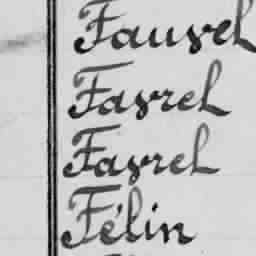 Fauvel
Favrel
Favrel
Félin